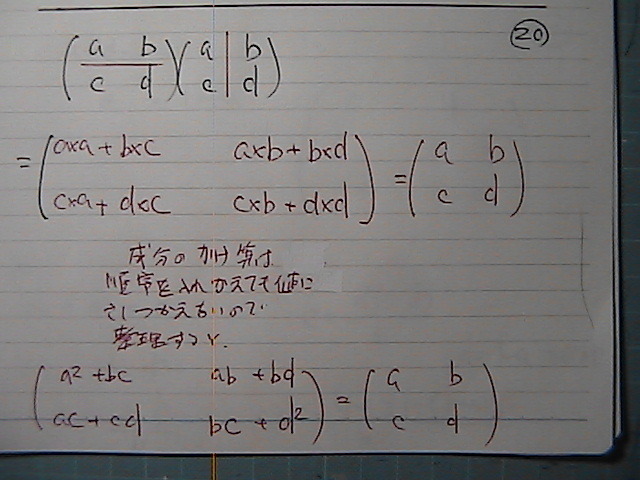 ⑳
( a b / c d )( a | b / c | d )
= ( a×a + b×c a×b + b×d
c×a + d×c c×b + d×d ) = ( a b / c d )
成分のかけ算は
順序を入れかえても値に
さしつかえないので
整理すると、
( a² + bc ab + bd ) = ( a b )
( ac + cd bc + d² ) ( c d )